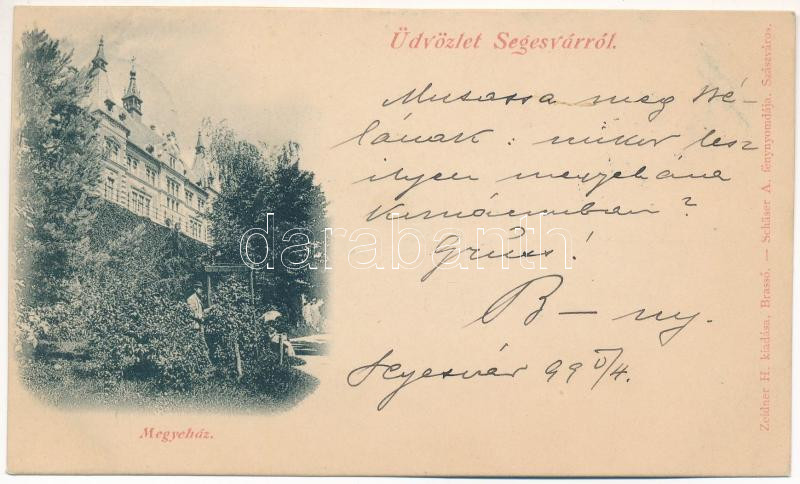 Üdvözlet Segesvárról.
Mutassa meg Bé-
lának: mikor lesz
ilyen megyeháza
Gruss!
B – ny.
Segesvár 99 V/4.
Megyeház.
Zeidner H. kiadása, Brassó. — Schäser A. fénynyomdája. Szászváros.
darabanth